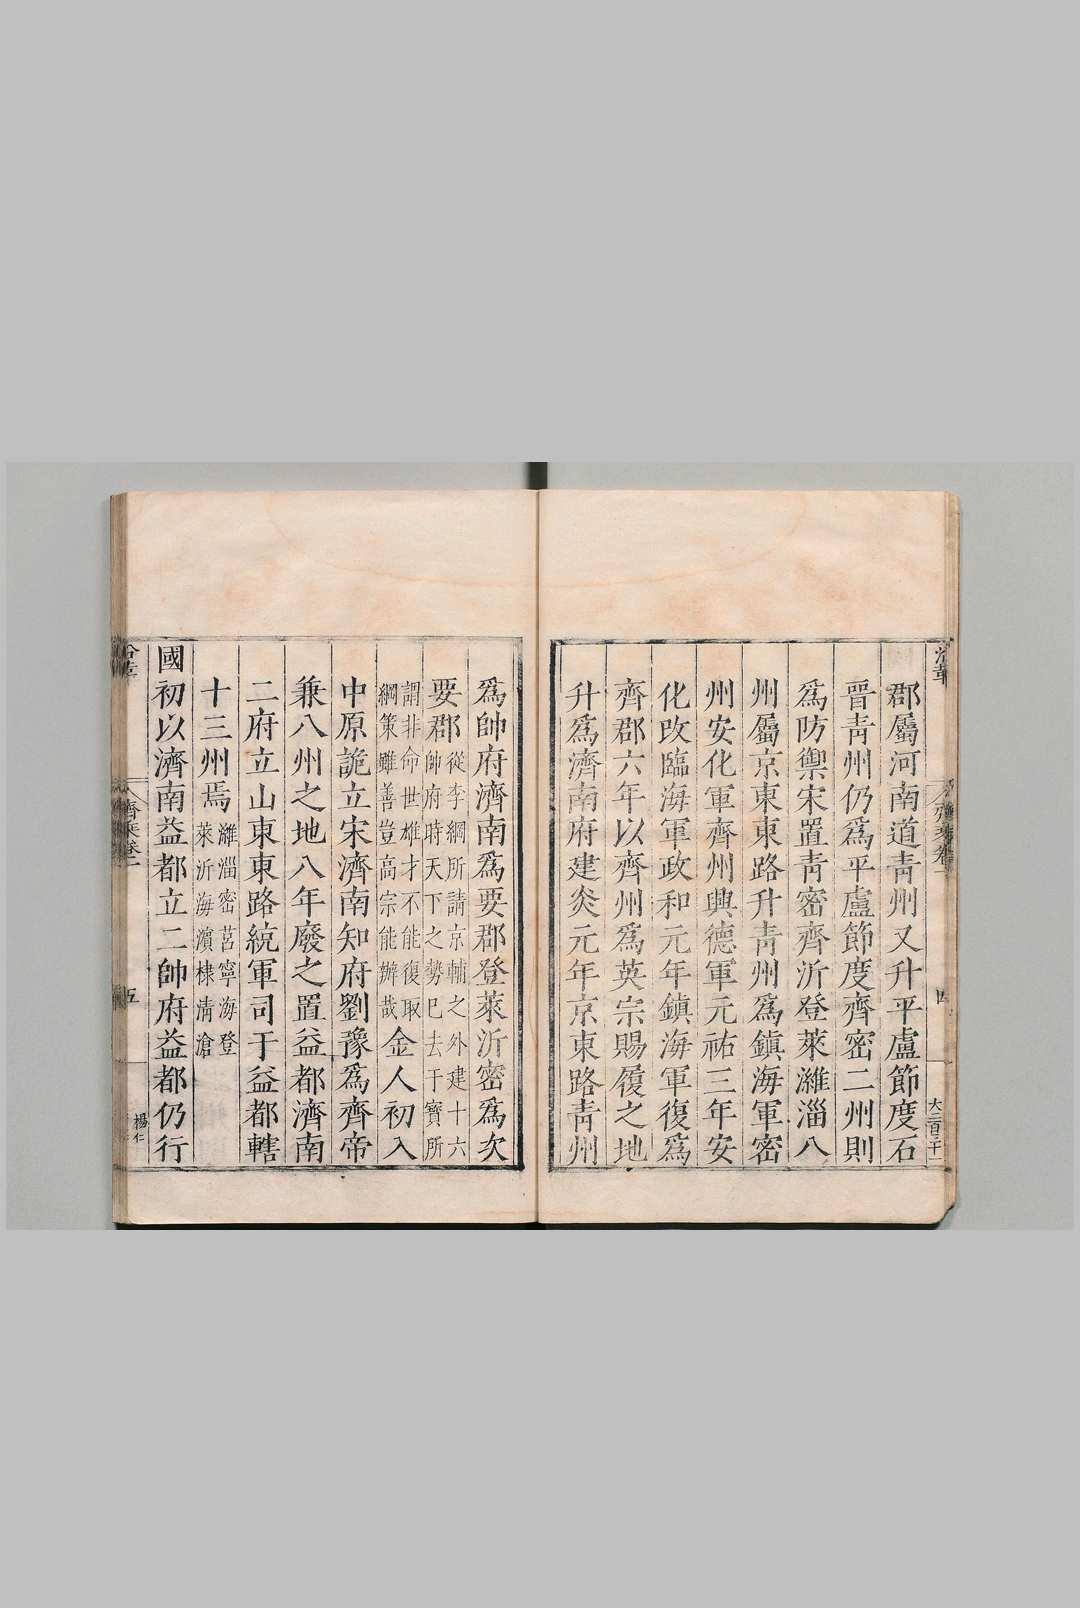 沿革
四
郡屬河南道靑州又升平盧節度石
晉靑州仍爲平盧節度齊密二州則
爲防禦宋置靑密齊沂登萊濰淄八
州屬京東東路升靑州爲鎭海軍密
州安化軍齊州興德軍元祐三年安
化改臨海軍政和元年鎭海軍復爲
齊郡六年以齊州爲英宗賜履之地
升爲濟南府建炎元年京東路靑州
爲帥府濟南爲要郡登萊沂密爲次
要郡從李綱所請京輔之外建十六
帥府時天下之勢已去干寶所
謂非命世雄才不能復取
綱策雖善豈高宗能辦哉金人初入
中原詭立宋濟南知府劉豫爲齊帝
兼八州之地八年廢之置益都濟南
二府立山東東路統軍司于益都轄
十三州焉濰淄密莒寧海登
萊沂海濱棣淸滄
國初以濟南益都立二帥府益都仍行
齊乘卷一
五
楊仁